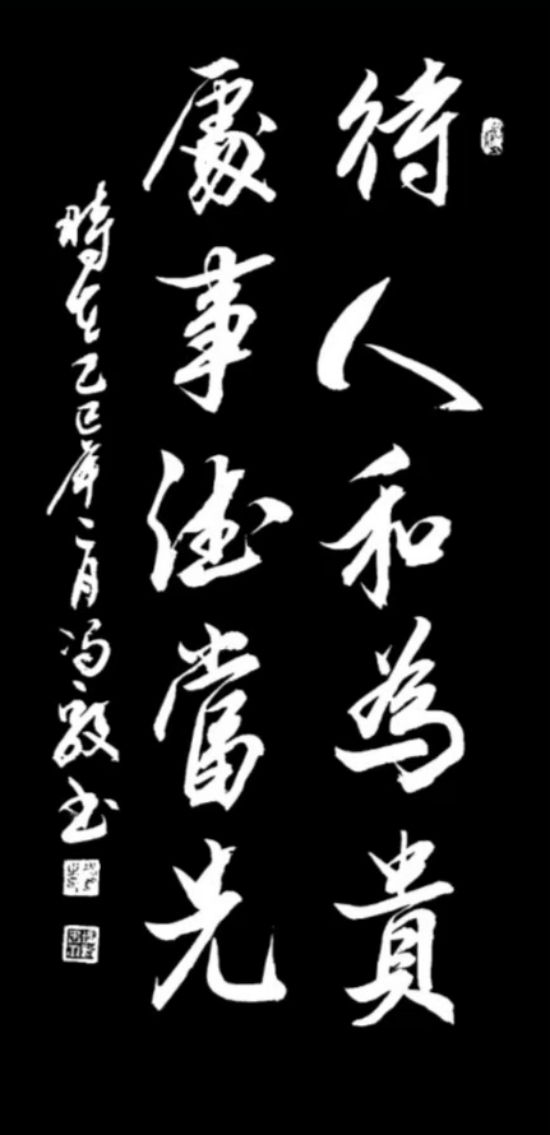 待人和為貴
處事德當先
時在乙巳年二月冯敏书